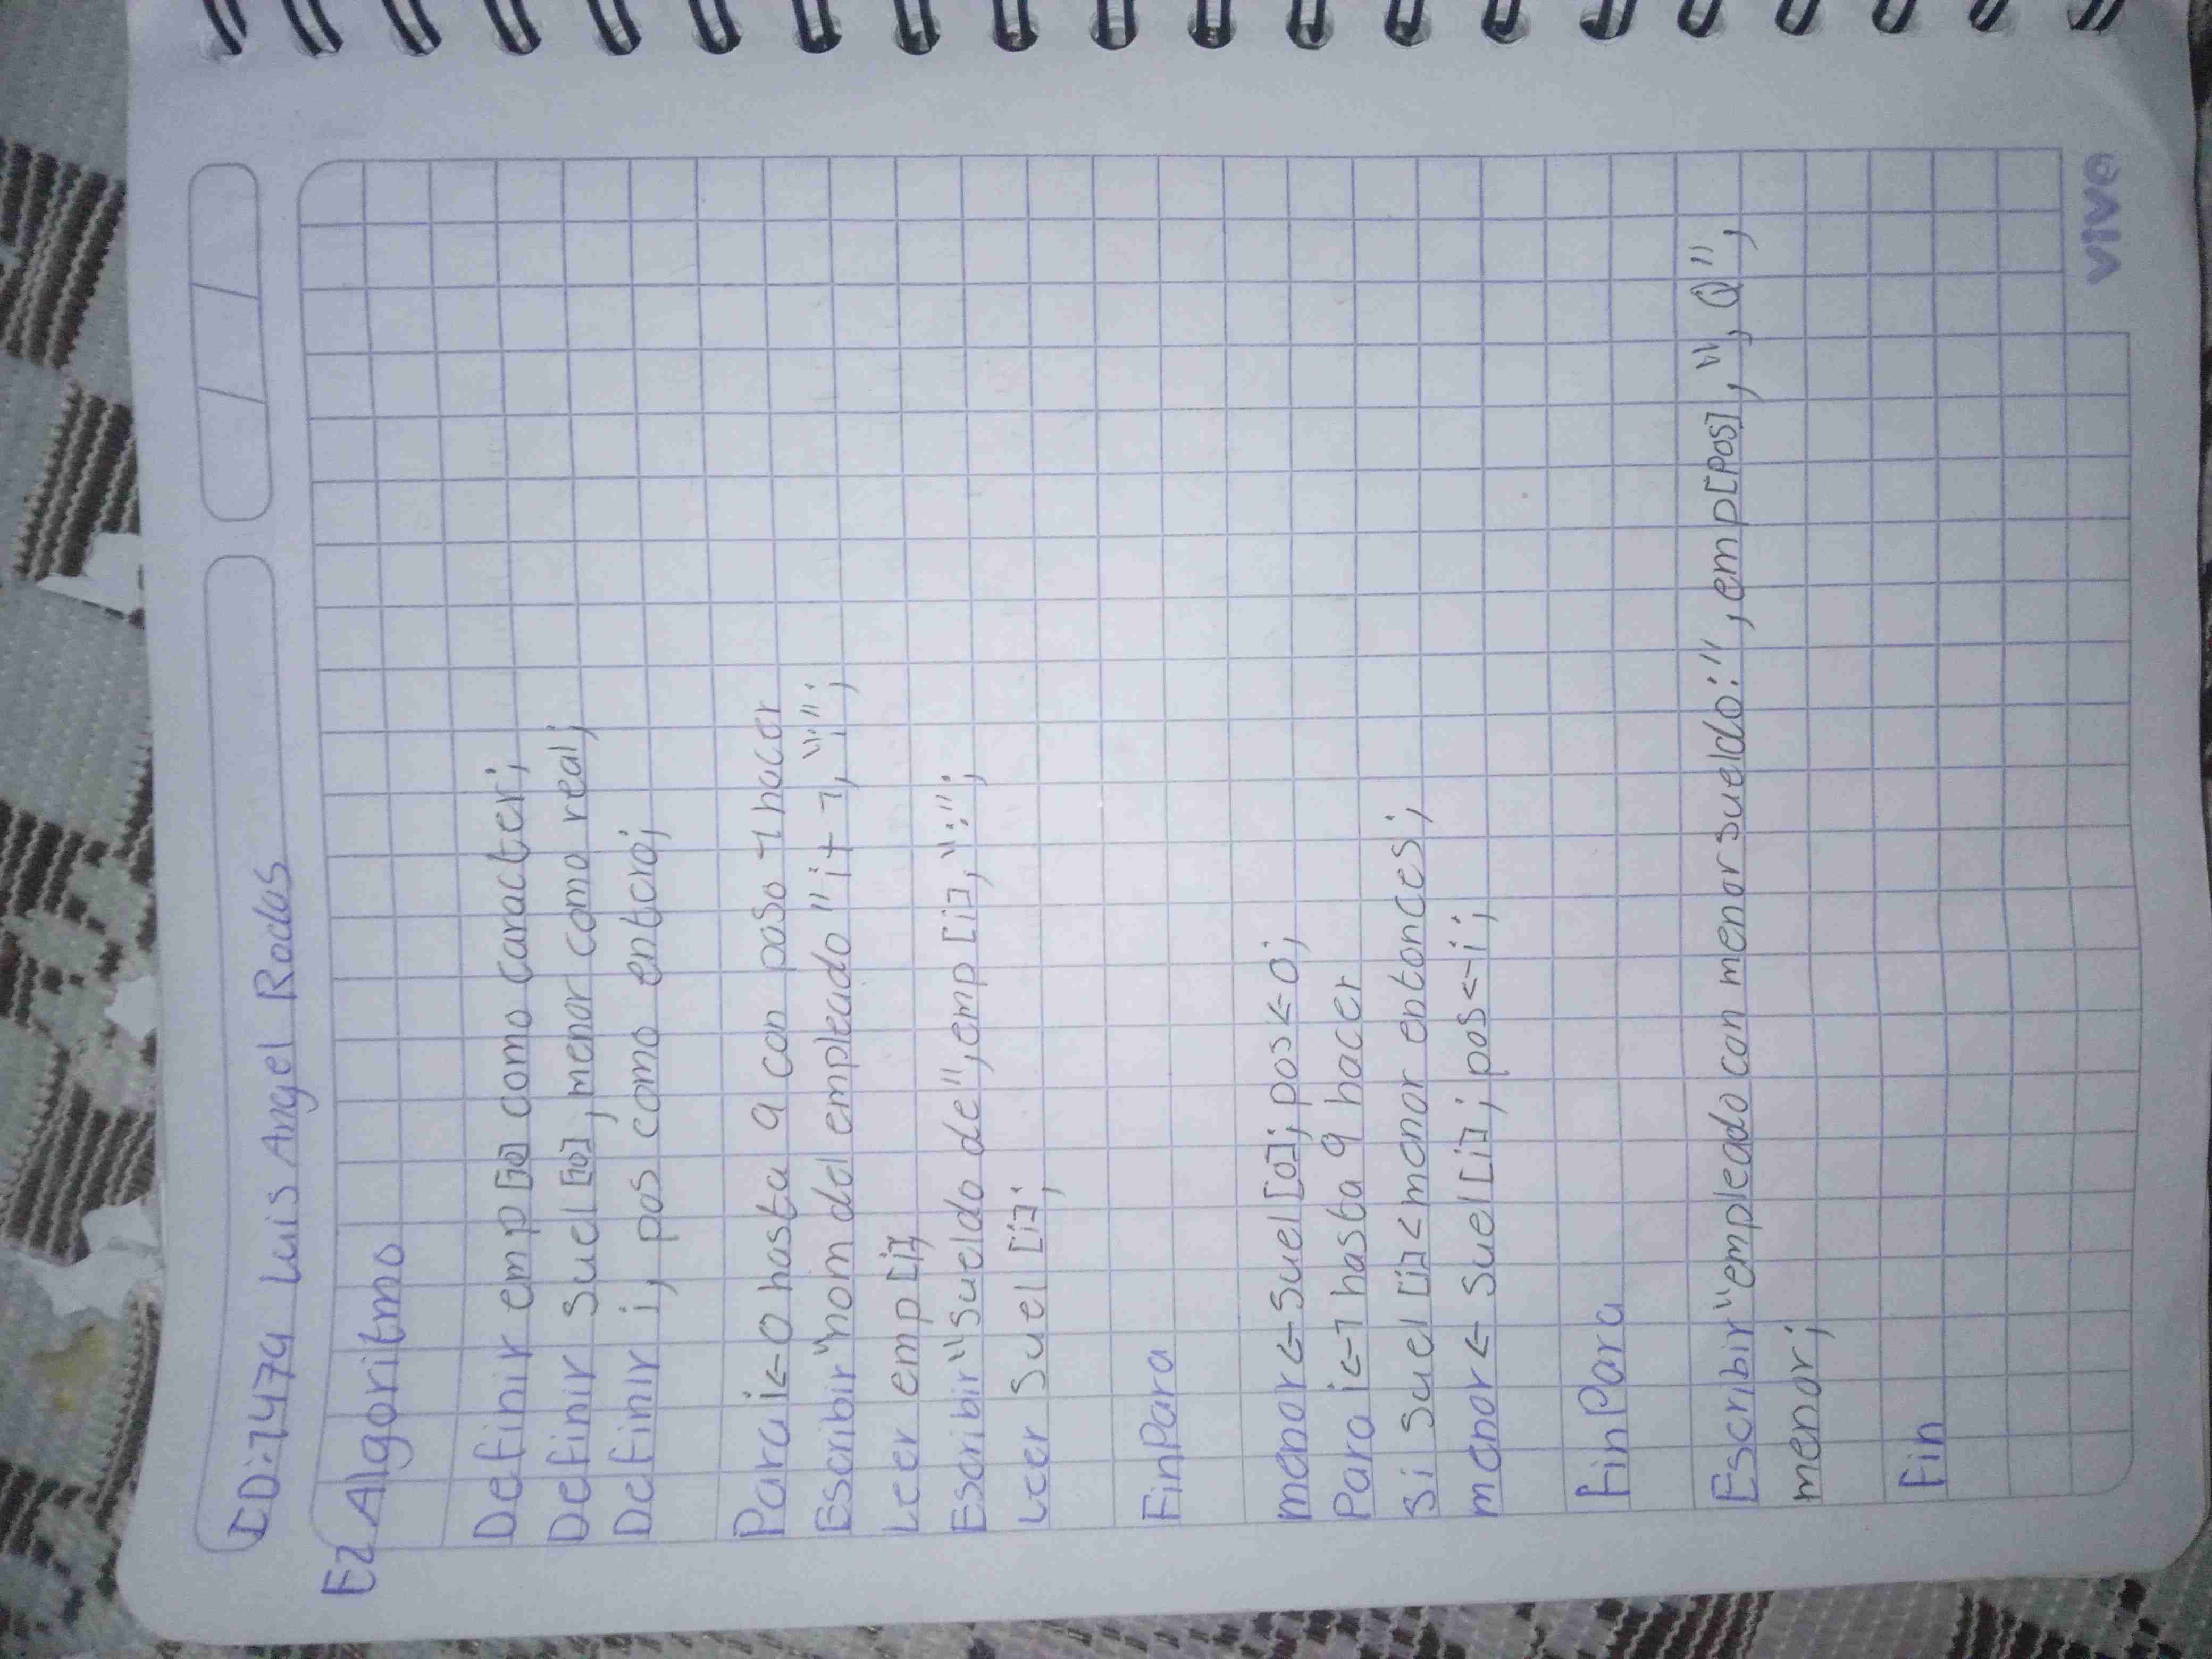 ID:7474 Luis Angel Rodas
E2 Algoritmo
Definir emp[10] como caracter;
Definir Suel[10], menor como real;
Definir i, pos como entero;
Para i<-0 hasta 9 con paso 1 hacer
Escribir "nom del empleado" i+1, ":";
Leer emp[i];
Escribir "Sueldo de", emp[i], ":";
Leer Suel[i];
FinPara
menor<-Suel[0]; pos<-0;
Para i<-1 hasta 9 hacer
Si Suel[i]<menor entonces;
menor<-Suel[i]; pos<-i;
FinPara
Escribir "empleado con menor sueldo:", emp[pos], "", Q",
menor;
Fin
vive